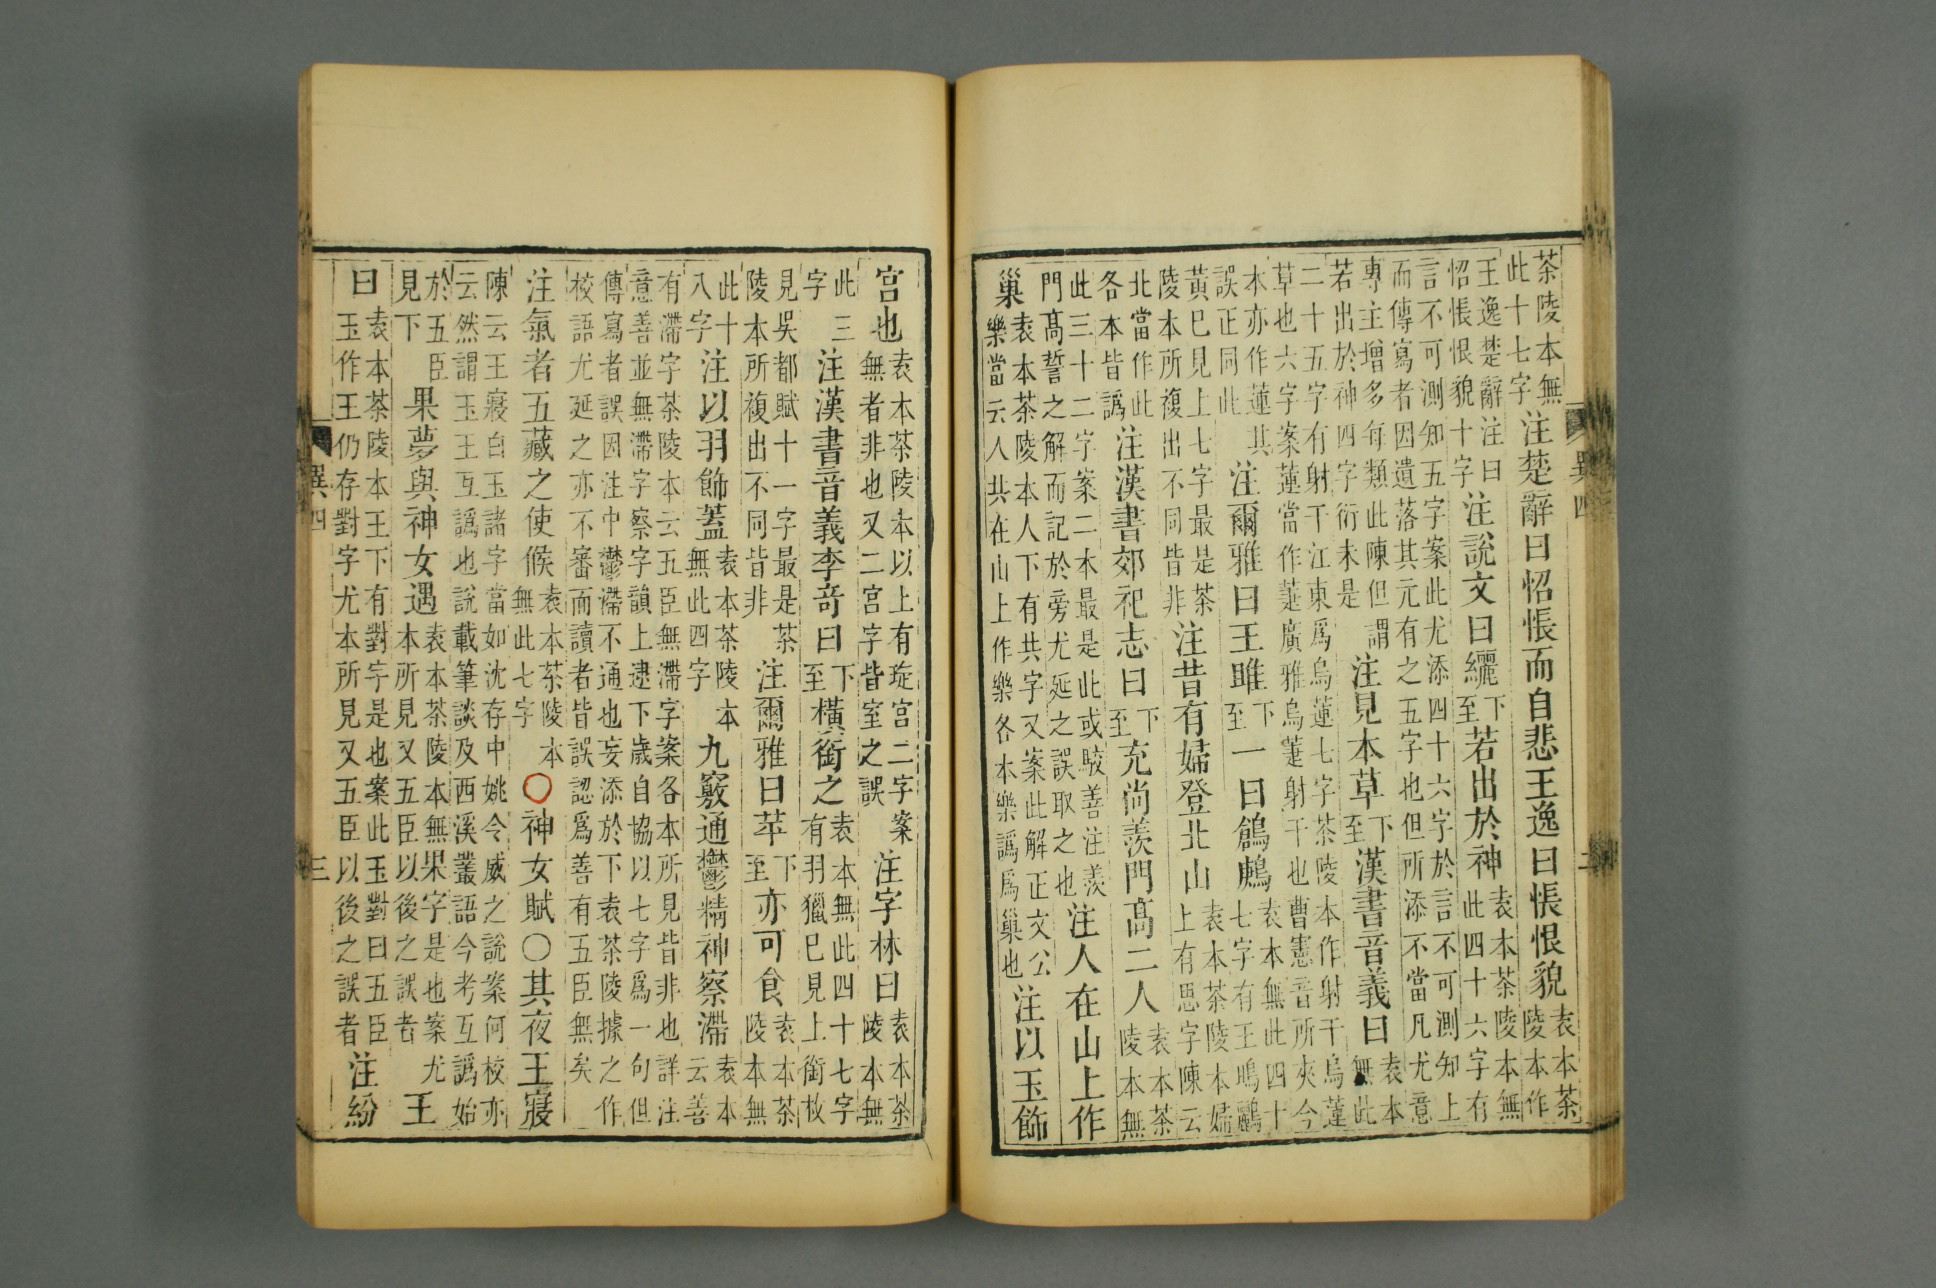 茶陵本無此十七字注楚辭曰怊悵而自悲王逸曰悵恨貌袁本茶陵本作
王逸楚辭注曰怊悵恨貌十字注說文曰纚下至若出於神袁本茶陵本無此四十六字有
言不可測知五字案此尤添四十六字於言不可測知上而傳寫者因遺落其元有之五字也但所添不當凡尤意
專主增多每類此陳但謂若出於神四字衍未是注見本草下至漢書音義曰袁本無此
二十五字有射干江東爲烏蓮七字茶陵本作射干烏蓮草也六字案蓮當作萐廣雅烏萐射干也曹憲音所夾今
本亦作蓮其誤正同此注爾雅曰王雎下至一曰鶬鷞袁本無此四十七字有王鴡鸝
黃已見上七字最是茶陵本所複出不同皆非注昔有婦登北山袁本茶陵本婦上有思字陳云
北當作此各本皆譌注漢書郊祀志曰下至充尚羨門高二人袁本茶陵本無
此三十二字案二本最是此或駮善注羨門高誓之解而記於旁尤延之誤取之也注人在山上作
巢袁本茶陵本人下有共字又案此解正文公樂當云人共在山上作樂各本樂譌爲巢也注以玉飾
宮也袁本茶陵本以上有琁宮二字案無者非也又二宮字皆室之誤注字林曰袁本茶陵本無
此三字注漢書音義李奇曰下至橫銜之袁本無此四十七字有羽獵已見上銜枚
見吳都賦十一字最是茶陵本所複出不同皆非注爾雅曰苹下至亦可食袁本茶陵本無
此十八字注以羽飾蓋袁本茶陵本無此四字九竅通鬱精神察滯袁本云善
有滯字茶陵本云五臣無滯字案各本所見皆非也詳注意善並無滯字察字韻上逮下歲自協以七字爲一句但
傳寫者誤因注中鬱滯不通也妄添於下袁茶陵據之作校語尤延之亦不審而讀者皆誤認爲善有五臣無矣
注氣者五藏之使候袁本茶陵本無此七字○神女賦○其夜王寢
陳云王寢白玉諸字當如沈存中姚令威之說案何校亦云然謂玉王互譌也說載筆談及西溪叢語今考互譌始
於五臣見下果夢與神女遇袁本茶陵本無果字是也案尤本所見又五臣以後之誤者王
曰袁本茶陵本王下有對字是也案此玉對曰五臣玉作王仍存對字尤本所見又五臣以後之誤者注紛
異四 三